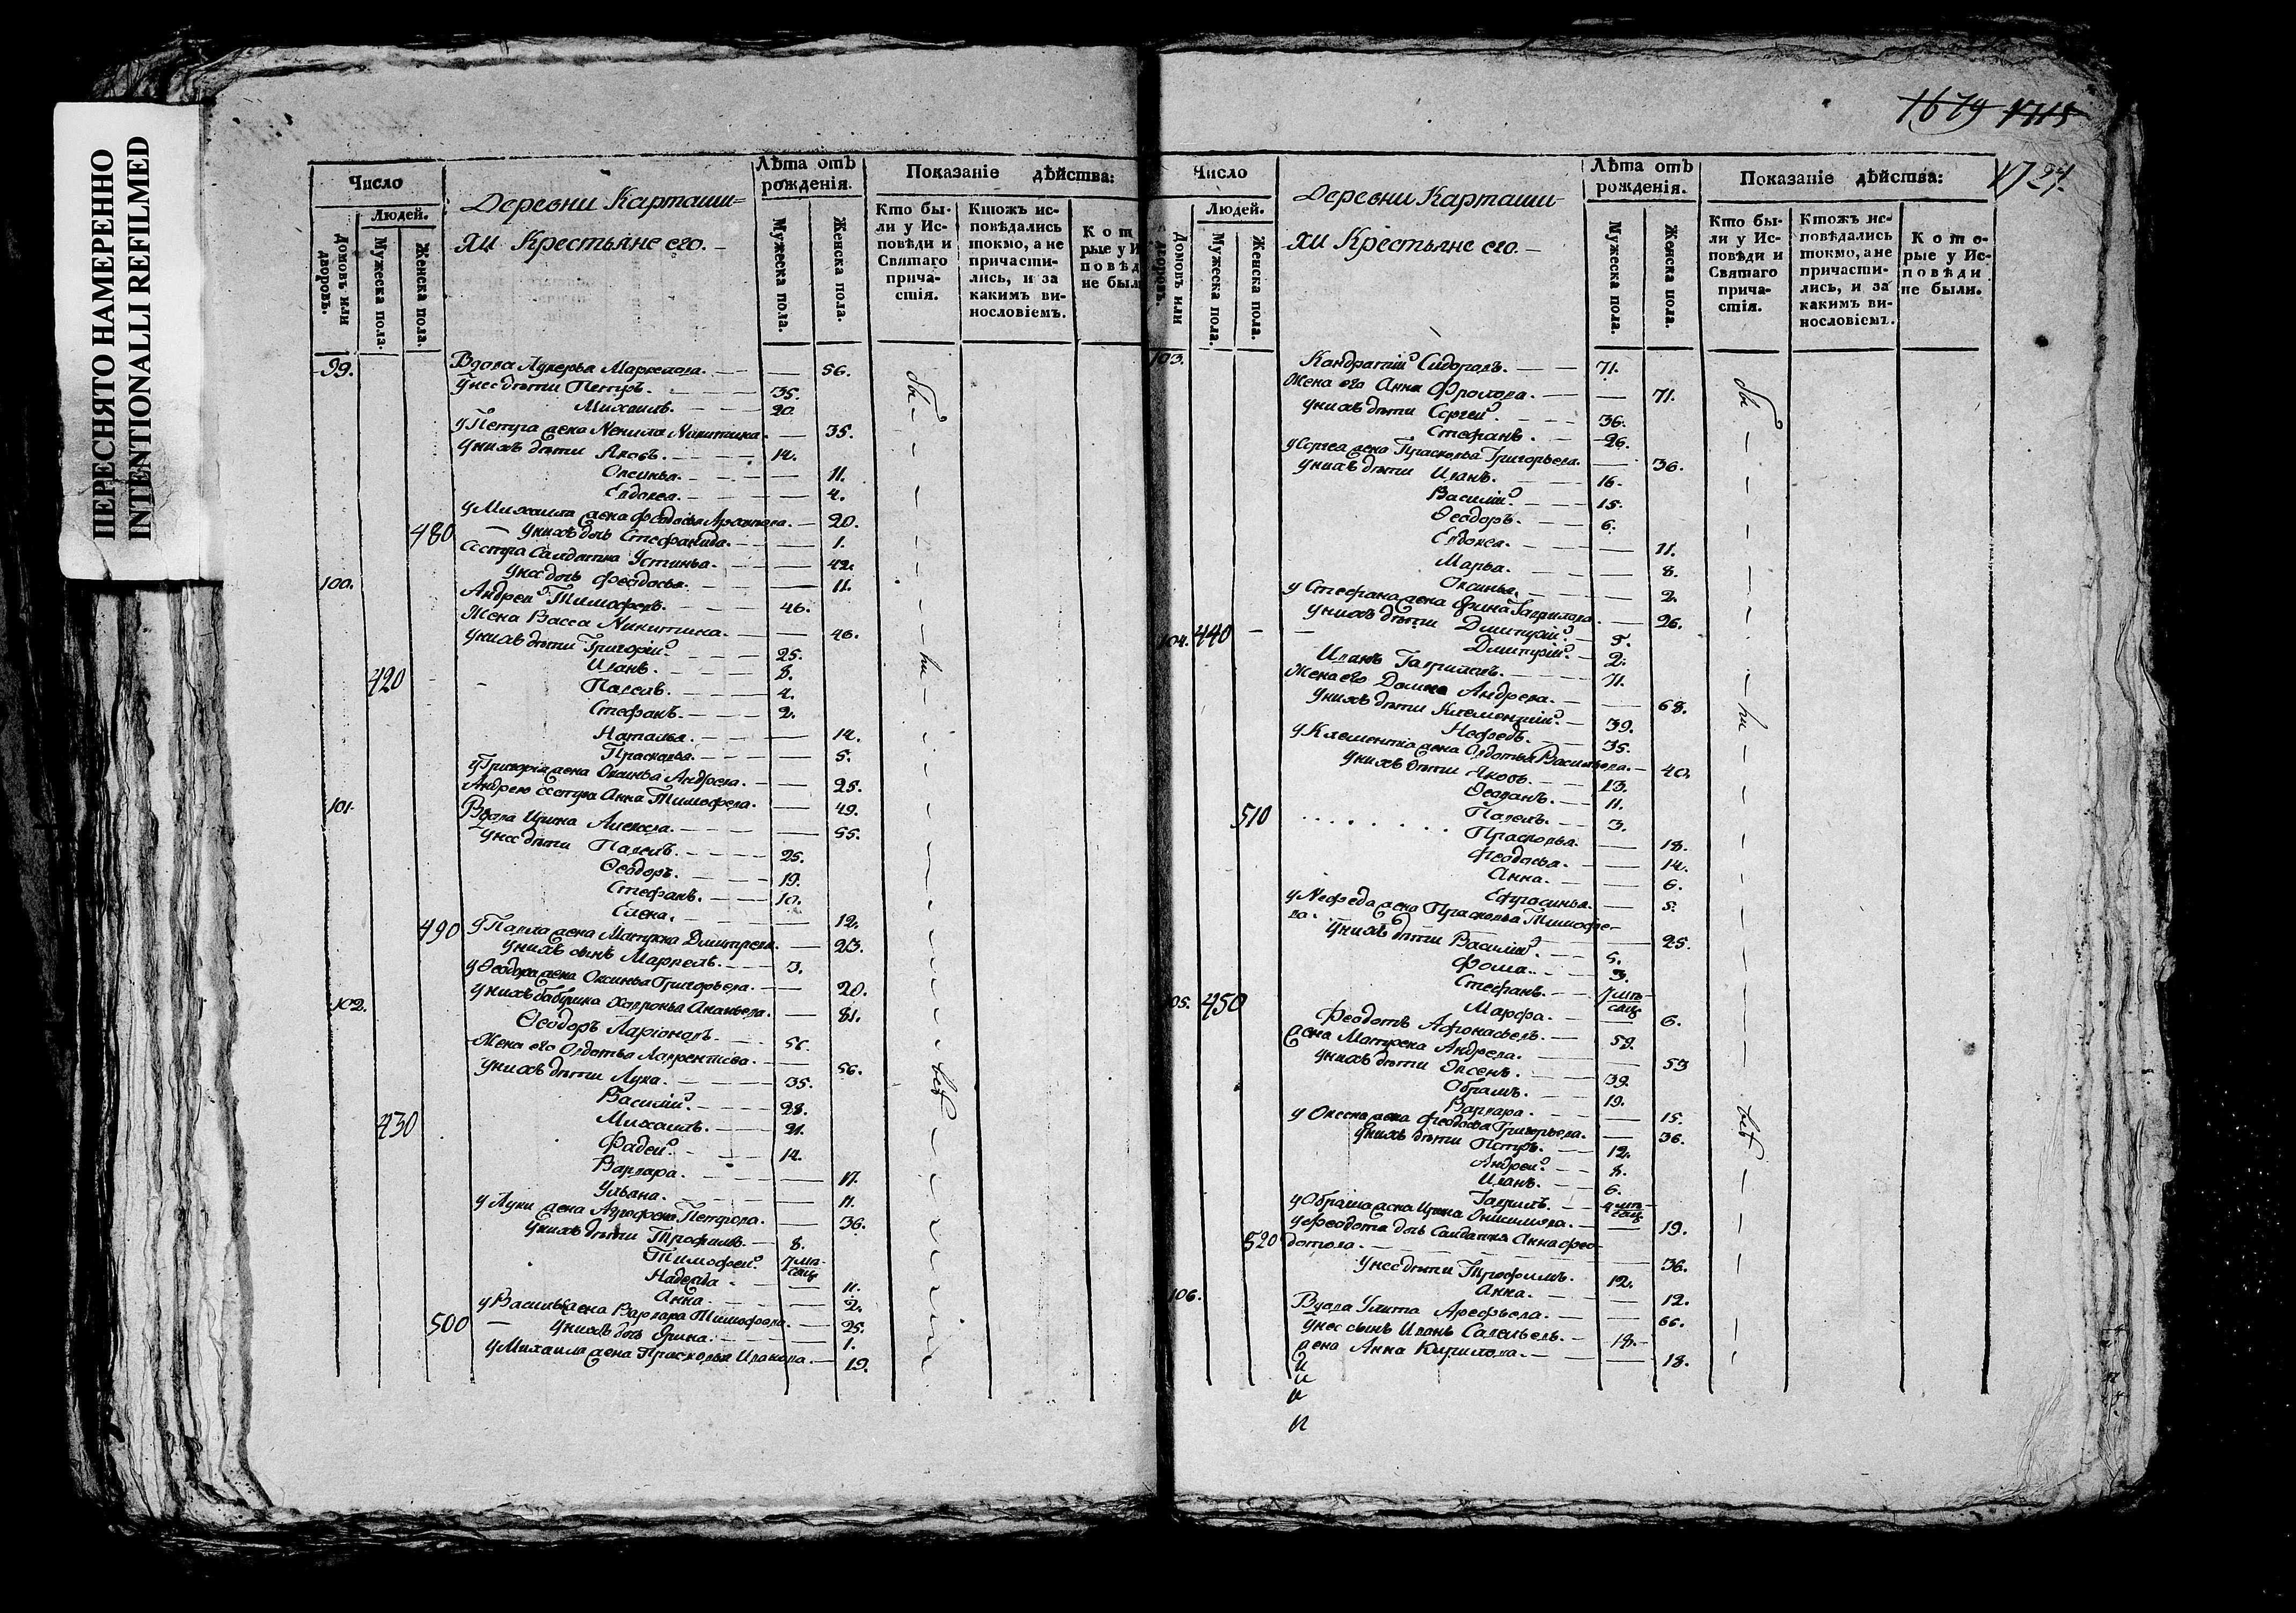 ПЕРЕСНЯТО НАМЕРЕННО
INTENTIONALLI REFILMED
Число
Людей.
Домовъ или дворовъ.
Мужеска пола.
Женска пола.
Деревни Карташи=
хи Крестьяне его. –
Лѣта отъ рожденія.
Мужеска пола.
Женска пола.
Показаніе дѣйства:
Кто бы-
ли у Ис-
повѣди и
Святаго
прича-
стія.
Ктожъ ис-
повѣдались
токмо, а не
причасти-
лись, и за
какимъ ви-
нословіемъ.
Кот
рые у И
повѣд
не был
99. Вдова Лукерья Маркелова. — 56.
Унее дѣти Петръ. 35.
Михаилъ. 20.
у Петра жена Ненила Никитина. — 35.
Унихъ дѣти Яковъ. 14.
Оксинья. — 11.
Евдокея. — 4.
у Михаила жена Феодосья — 20.
480 Унихъ дочь Стефанида. — 1.
Сестра Салдатка Устинья. — 42.
Унее дочь Феодосья. — 11.
100. Андрей Тимофеевъ. 46.
Жена Васса Никитина. — 46.
Унихъ дѣти Григорій. 25.
Иванъ. 8.
420 Павелъ. 4.
Стефанъ. 2.
Наталья. — 14.
Прасковья. — 5.
у Григорія жена Оксинья Андреева. — 25.
Андрею сестра Анна Тимофеева. — 49.
101. Вдова Ирина Алексеева. — 55.
Унее дѣти Павелъ. 25.
Ѳеодоръ. 19.
Стефанъ. 10.
Елена. — 12.
490 у Павла жена Матрена Дмитреева. — 23.
Унихъ сынъ Маркелъ. 3.
у Ѳеодора жена Оксинья Григорьева. — 20.
Унихъ бабушка Хавронья Ананьева. — 81.
102. Ѳеодоръ Ларіоновъ. 56.
Жена его Овдотья Лаврентьева. — 56.
Унихъ дѣти Лука. 35.
Василій. 28.
430 Михаилъ. 21.
Фадей. 14.
Варвара. — 17.
Ульяна. — 11.
у Луки жена Агрофена Петрова. — 36.
Унихъ дѣти Трофимъ. 8.
Тимофей. 7 мѣ-
сяц
Надежда. — 11.
Анна. — 2.
у Василья жена Варвара Тимофеева. — 25.
500 Унихъ дочь Ѳрина. — 1.
у Михаила жена Прасковья Иванова. — 19.
бы-
ли
всѣ
1679 1715
1724.
Число
Людей.
Домовъ или дворовъ.
Мужеска пола.
Женска пола.
Деревни Карташи-
хи Крестьяне его. –
Лѣта отъ рожденія.
Мужеска пола.
Женска пола.
Показаніе дѣйства:
Кто бы-
ли у Ис-
повѣди и
Святаго
прича-
стія.
Ктожъ ис-
повѣдались
токмо, а не
причасти-
лись, и за
какимъ ви-
нословіемъ.
Кото-
рые у Ис-
повѣди
не были.
103. Кандратій Сидоровъ. 71.
Жена его Анна Фролова. — 71.
Унихъ дѣти Сергей. 36.
Стефанъ. 26.
у Сергея жена Прасковья Григорьева. — 36.
Унихъ дѣти Иванъ. 16.
Василій. 15.
Ѳеодоръ. 6.
Евдокея. — 11.
Марья. — 8.
Оксинья. — 2.
у Стефана жена Ѳрина Гаврилова. — 26.
440 Унихъ дѣти Дмитрій. 5.
Дмитрій. 2.
104. Иванъ Гавриловъ. 71.
Жена его Домна Андреева. — 68.
Унихъ дѣти Клементій. 39.
Нефедъ. 35.
у Клементія жена Овдотья Васильева. — 40.
Унихъ дѣти Яковъ. 13.
11.
510 Павелъ. 3.
Прасковья. — 18.
Феодосья. — 14.
Анна. — 6.
Ефросинья. — 5.
у Нефеда жена Прасковья Тимофе-
ва. — 25.
Унихъ дѣти Василій. 5.
Фома. 3.
Стефанъ. 7 мѣ-
сяц
450 Марфа. — 6.
105. Феодотъ Афонасьевъ. 59.
жена Матрена Андреева. — 53
Унихъ дѣти Оксенъ. 39.
Обрамъ. 19.
Варвара. — 15.
у Оксена жена Феодосья Григорьева. — 36.
Унихъ дѣти Петръ. 12.
Андрей. 8.
Иванъ. 6.
Гаврилъ.
у Обрама жена Ирина Онисимова. — 19.
520 у Феодота дочь Салдатка Анна Фео-
дотова. — 36.
Унее дѣти Трофимъ. 12.
Анна. — 12.
106. Вдова Улита Арефьева. — 66.
Унее сынъ Иванъ Савельевъ. 18.
жена Анна Кирилова. — 18.
бы-
ли
всѣ